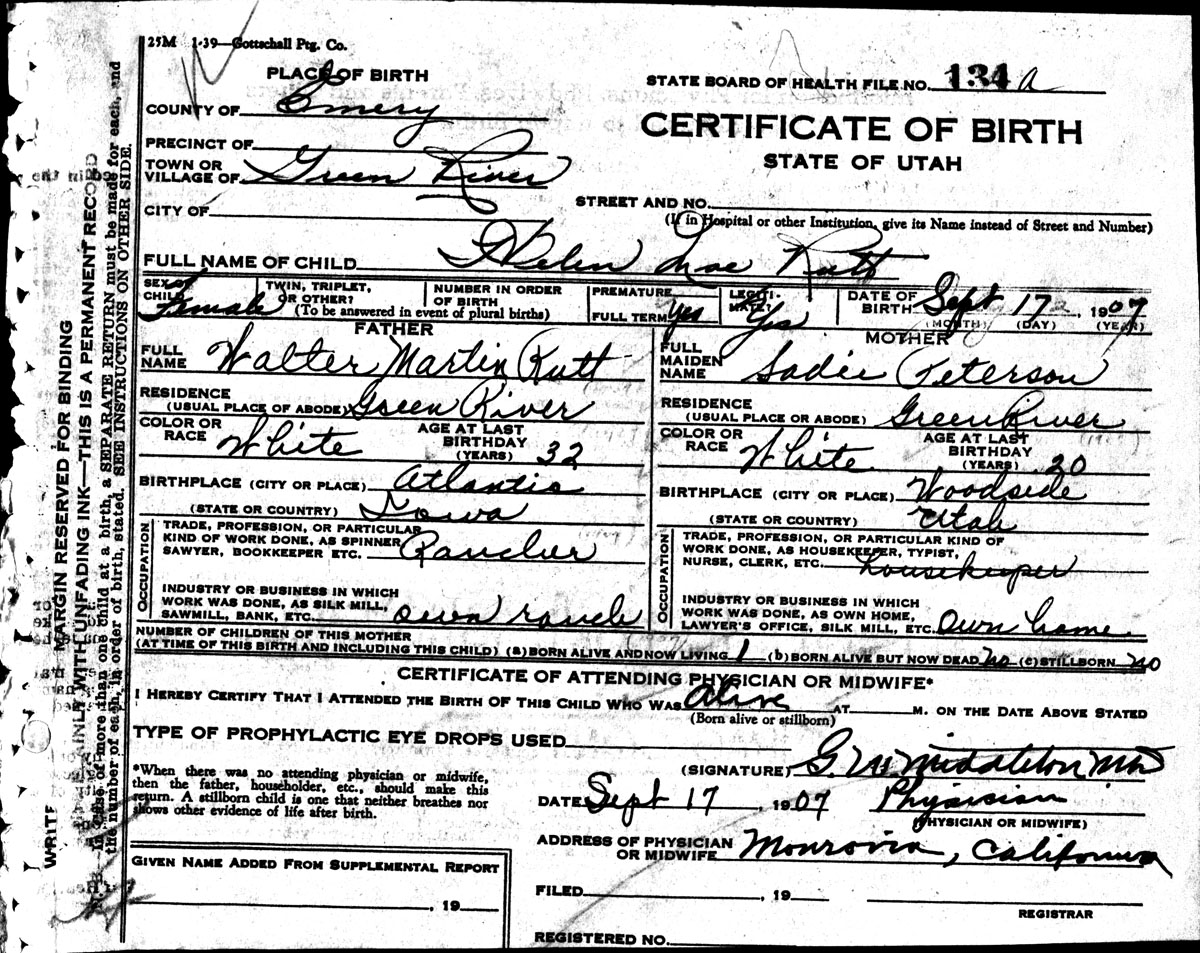 25M 1-39—Gottschall Ptg. Co.
PLACE OF BIRTH
STATE BOARD OF HEALTH FILE NO. 134 a
COUNTY OF Emery
CERTIFICATE OF BIRTH
STATE OF UTAH
PRECINCT OF
TOWN OR VILLAGE OF Green River
CITY OF
STREET AND NO.
(If in Hospital or other Institution, give its Name instead of Street and Number)
FULL NAME OF CHILD Helen Mae Rutt
SEX OF CHILD Female
TWIN, TRIPLET, OR OTHER?
NUMBER IN ORDER OF BIRTH
(To be answered in event of plural births)
PREMATURE
FULL TERM yes
LEGITI-MATE? Yes
DATE OF BIRTH Sept 17 1907
(MONTH) (DAY) (YEAR)
FATHER
FULL NAME Walter Martin Rutt
RESIDENCE (USUAL PLACE OF ABODE) Green River
COLOR OR RACE White
AGE AT LAST BIRTHDAY (YEARS) 32
BIRTHPLACE (CITY OR PLACE) Atlantic
(STATE OR COUNTRY) Iowa
OCCUPATION
TRADE, PROFESSION, OR PARTICULAR
KIND OF WORK DONE, AS SPINNER
SAWYER, BOOKKEEPER ETC. Rancher
INDUSTRY OR BUSINESS IN WHICH
WORK WAS DONE, AS SILK MILL,
SAWMILL, BANK, ETC. own ranch
MOTHER
FULL MAIDEN NAME Sadie Peterson
RESIDENCE (USUAL PLACE OR ABODE) Green River
COLOR OR RACE White
AGE AT LAST BIRTHDAY (YEARS) 20
BIRTHPLACE (CITY OR PLACE) Woodside
(STATE OR COUNTRY) Utah
OCCUPATION
TRADE, PROFESSION, OR PARTICULAR KIND OF
WORK DONE, AS HOUSEKEEPER, TYPIST,
NURSE, CLERK, ETC. housekeeper
INDUSTRY OR BUSINESS IN WHICH
WORK WAS DONE, AS OWN HOME,
LAWYER'S OFFICE, SILK MILL, ETC. Own home
NUMBER OF CHILDREN OF THIS MOTHER
(AT TIME OF THIS BIRTH AND INCLUDING THIS CHILD) (a) BORN ALIVE AND NOW LIVING 1 (b) BORN ALIVE BUT NOW DEAD no (c) STILLBORN no
CERTIFICATE OF ATTENDING PHYSICIAN OR MIDWIFE*
I HEREBY CERTIFY THAT I ATTENDED THE BIRTH OF THIS CHILD WHO WAS alive AT M. ON THE DATE ABOVE STATED
(Born alive or stillborn)
TYPE OF PROPHYLACTIC EYE DROPS USED
*When there was no attending physician or midwife,
then the father, householder, etc., should make this
return. A stillborn child is one that neither breathes nor
shows other evidence of life after birth.
(SIGNATURE) G. W. Middleton MD
DATE Sept 17, 1907 Physician
(PHYSICIAN OR MIDWIFE)
ADDRESS OF PHYSICIAN OR MIDWIFE Monrovia, California
GIVEN NAME ADDED FROM SUPPLEMENTAL REPORT
, 19
FILED , 19
REGISTRAR
REGISTERED NO.
MARGIN RESERVED FOR BINDING
WRITE PLAINLY WITH UNFADING INK—THIS IS A PERMANENT RECORD
N. B. In case of more than one child at a birth, a SEPARATE RETURN must be made for each, and
the number of each, in order of birth, stated. SEE INSTRUCTIONS ON OTHER SIDE.